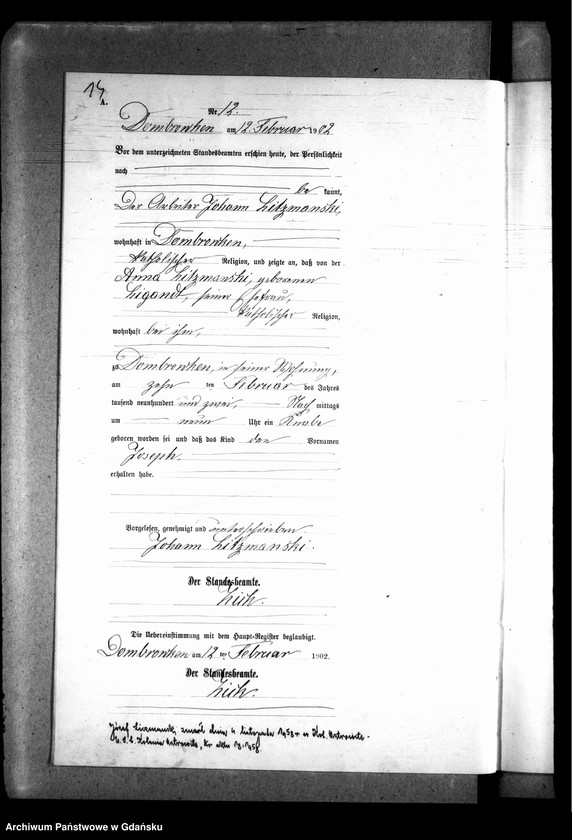 14
A.
Nr. 12.
Dombrowken am 12. Februar 1902
Vor dem unterzeichneten Standesbeamten erschien heute, der Persönlichkeit
nach
be kannt,
Der Arbeiter Johann Litzmanski,
wohnhaft in Dombrowken,
katholischer Religion, und zeigte an, daß von der
Anna Litzmanski, geborenen
Ligandt, seiner Ehefrau,
katholischer Religion,
wohnhaft bei ihm,
zu Dombrowken, in seiner Wohnung,
am zehn ten Februar des Jahres
tausend neunhundert und zwei, Nach mittags
um neun Uhr ein Knabe
geboren worden sei und daß das Kind den Vornamen
Joseph.
erhalten habe.
Vorgelesen, genehmigt und unterschrieben.
Johann Litzmanski.
Der Standesbeamte.
Die Uebereinstimmung mit dem Haupt-Register beglaubigt.
Dombrowken am 12 ten Februar 1902.
Der Standesbeamte.
Józef zmarł dnia 4 listopada 1958 r. w
U.S.C. Nr aktu
Archiwum Państwowe w Gdańsku